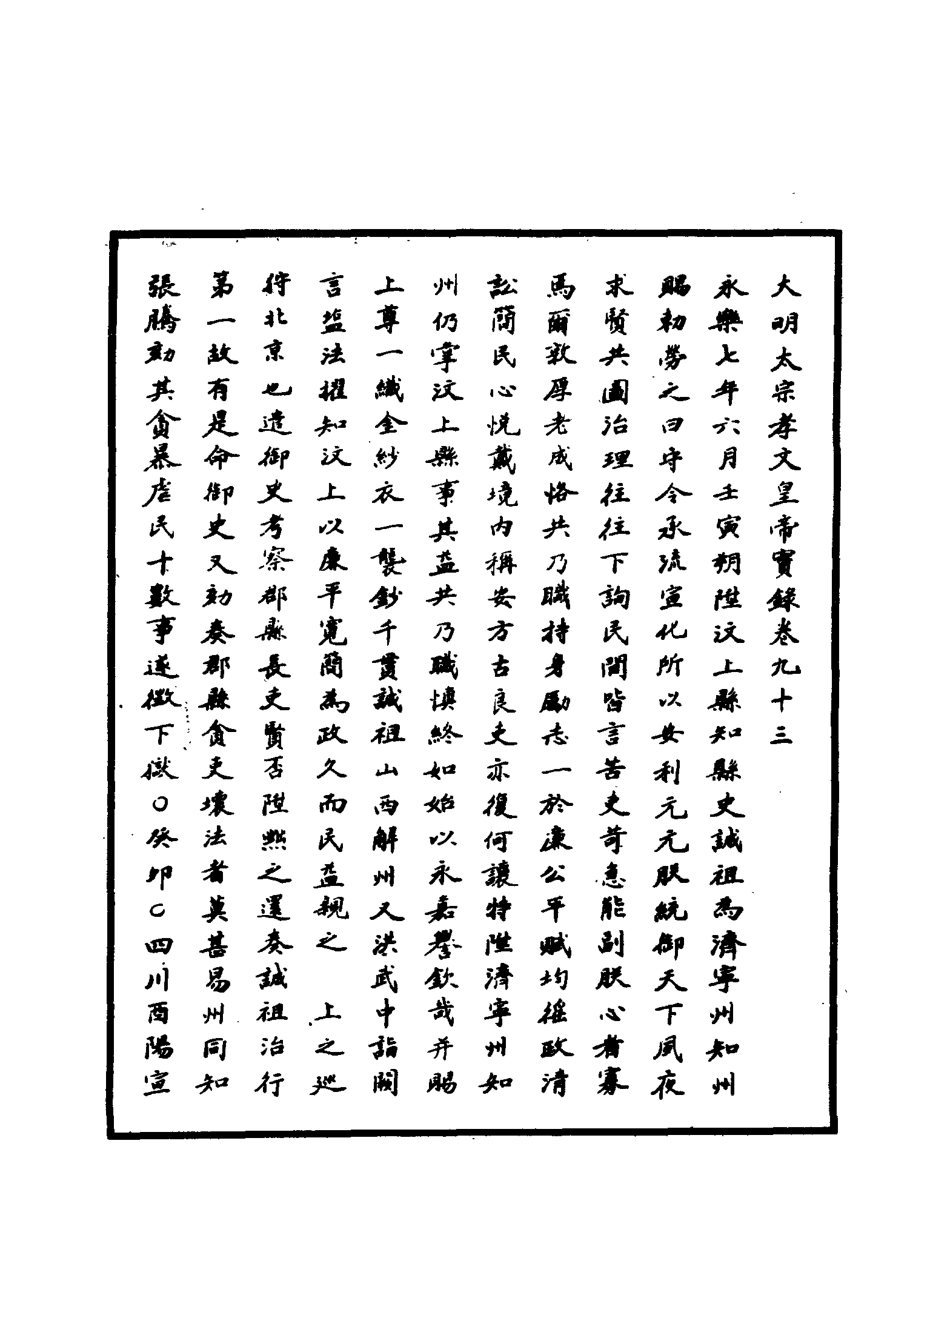 大明太宗孝文皇帝實錄卷九十三
永樂七年六月壬寅朔陞汶上縣知縣史誠祖為濟寧州知州
賜勑勞之曰守令承流宣化所以安利元元朕統御天下夙夜
求賢共圖治理往往下詢民間皆言苦吏苛急能副朕心者寡
焉爾敦厚老成恪共乃職持身勵志一於廉公平賦均徭政清
訟簡民心悅戴境內稱安方古良吏亦復何讓特陞濟寧州知
州仍掌汶上縣事其益共乃職慎終如始以永嘉譽欽哉并賜
上尊一織金紗衣一襲鈔千貫誠祖山西解州人洪武中詣闕
言塩法擢知汶上以廉平寬簡為政久而民益親之　上之巡
狩北京也遣御史考察郡縣長吏賢否陞黜之還奏誠祖治行
第一故有是命御史又劾奏郡縣貪吏壞法者莫甚易州同知
張騰劾其貪暴虐民十數事遂徵下獄○癸卯○四川酉陽宣